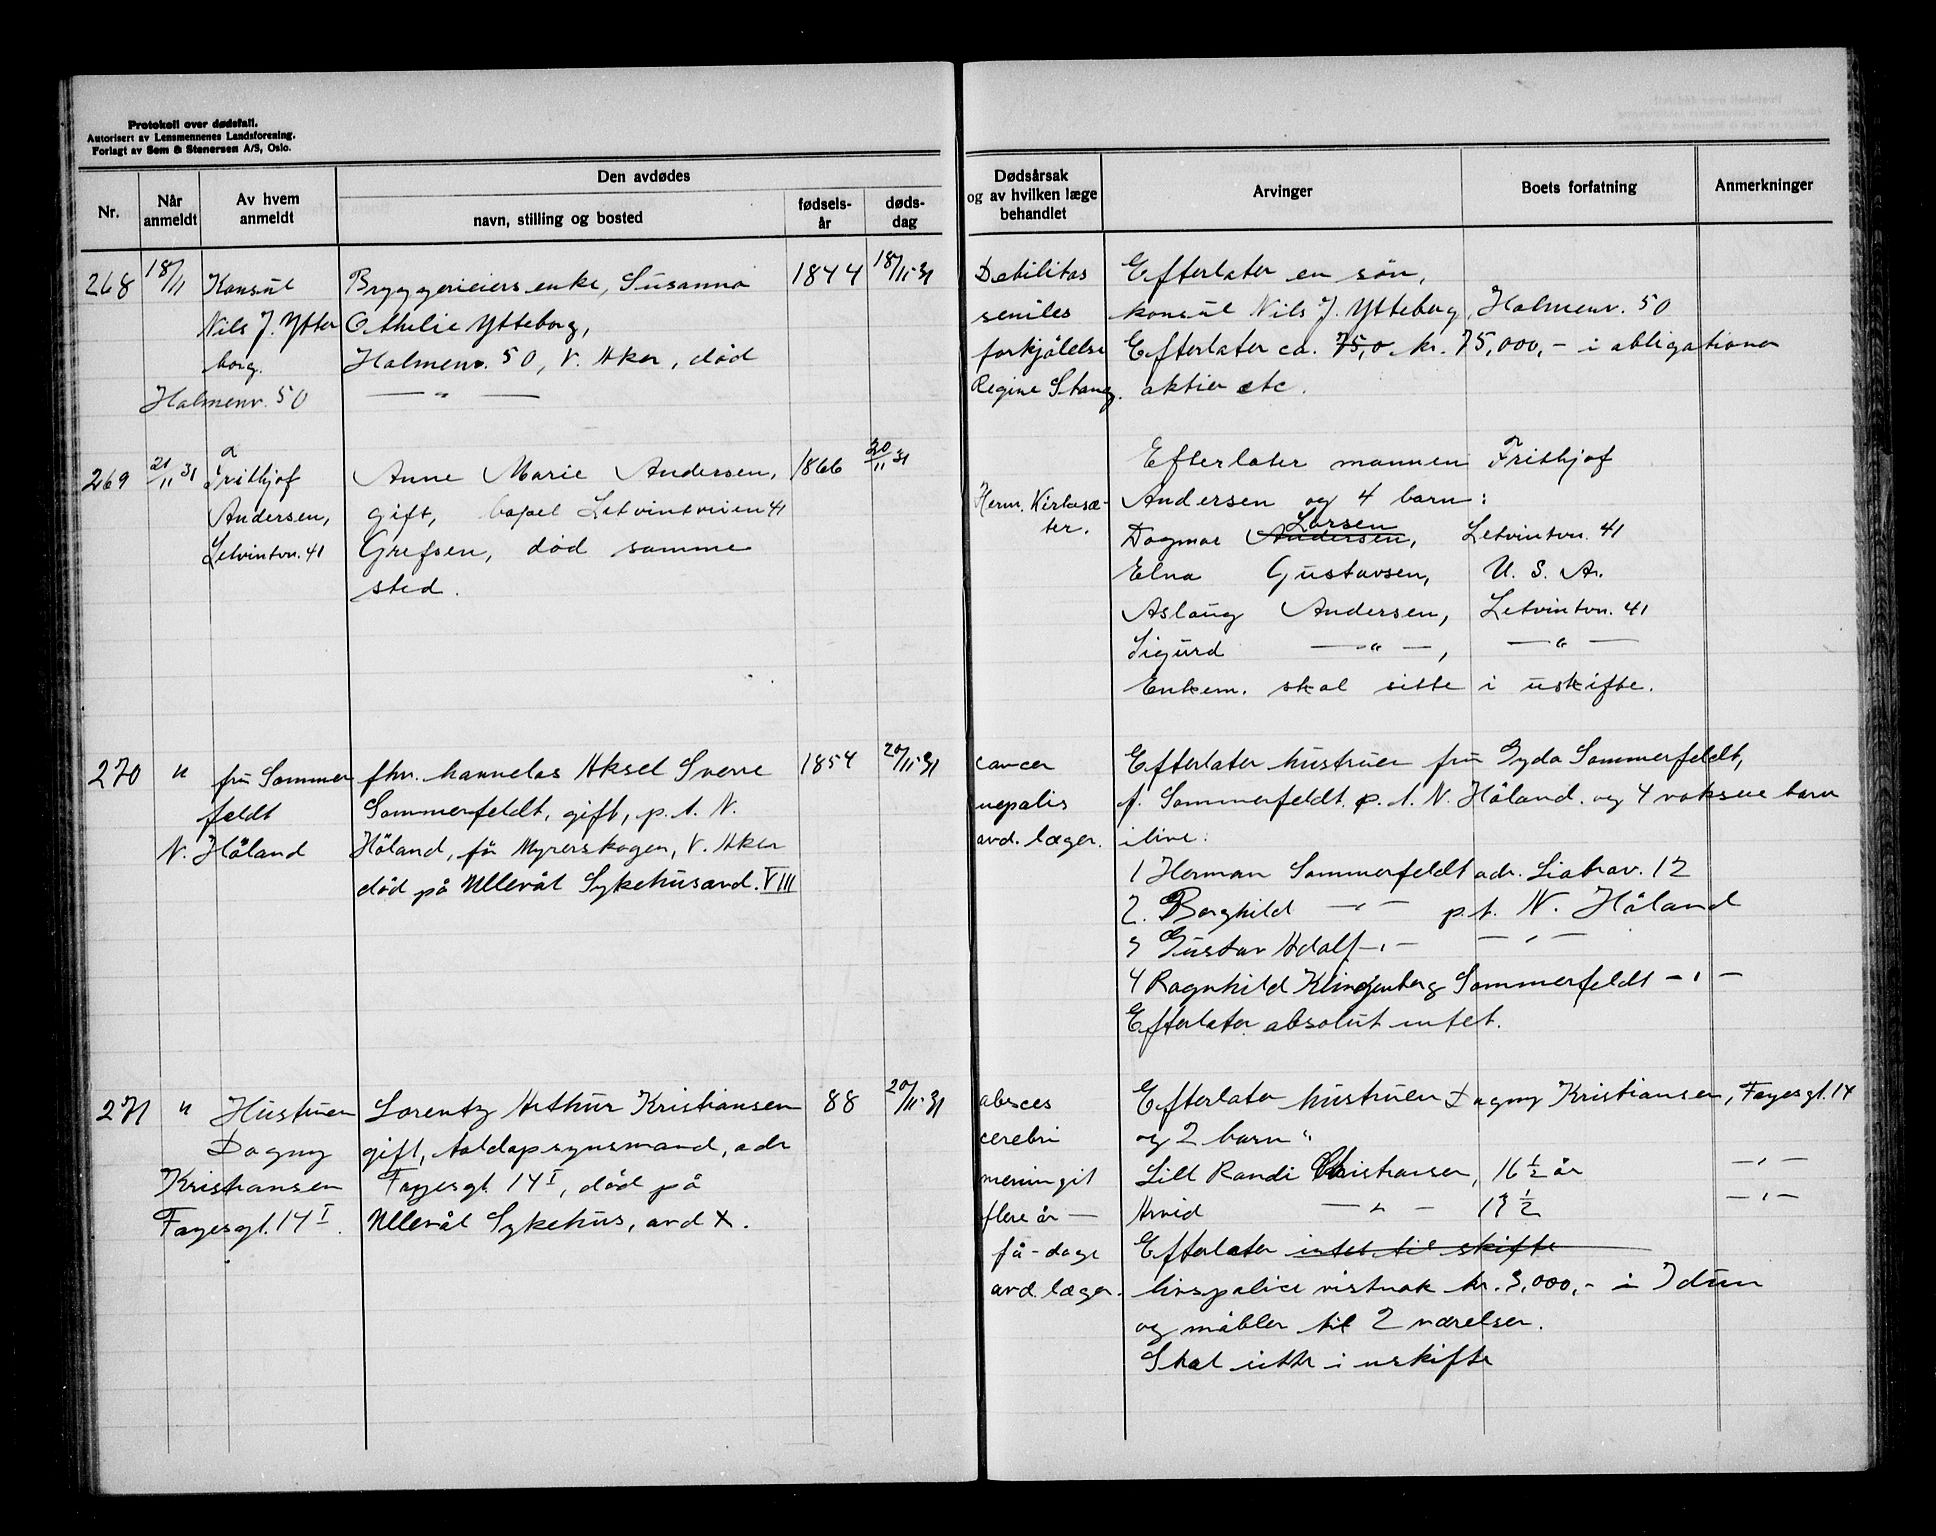 Protokoll over dødsfall.
Autorisert av Lensmennenes Landsforening.
Forlagt av Sem & Stenersen A/S, Oslo.
Nr.
Når anmeldt
Av hvem anmeldt
Den avdødes
navn, stilling og bosted
fødsels-år
døds-dag
Dødsårsak
og av hvilken læge
behandlet
Arvinger
Boets forfatning
Anmerkninger
268
18/11
Konsul
Nils J. Ytter
borg.
Holmenv. 50
Bryggerieiers enke, Susanna
Othelie Ytteborg,
Holmenv. 50, V. Aker, død
— " —
1844
18/11-31
Debilitas
seniles
forkjölelse
Regine Stang.
Efterlater en sön,
konsul Nils J. Ytteborg, Holmenv. 50
Efterlater ca. 75,0 kr. 75,000,- i obligationer
aktier etc.
269
21/11 31
Frithjof
Andersen,
Letvintvn. 41
Anne Marie Andersen,
gift, Letvintveien 41
Grefsen, död samme
sted.
1866
20/11 31
Herm. Kirkesæ-
ter.
Efterlater mannen Frithjof
Andersen og 4 barn:
Larsen
Dagmar Andersen, Letvintvn. 41
Elna Gustavsen, U. S. A.
Aslaug Andersen, Letvintvn. 41
Sigurd — " —, — " —
Enkem. skal sitte i uskifte.
270
"
fru Sommer
feldt
N. Höland
fhv. Aksel Sverre
Sommerfeldt, gift, p. t. N.
Höland, för Myrerskogen, V. Aker
död på Ullevål Sykehus avd. VIII
1854
20/11-31
cancer
avd. læger.
Efterlater hustruen fru Gyda Sommerfeldt,
f. Sommerfeldt, p. t. N. Höland. og 4 voksne barn
i live:
1 Herman Sommerfeldt adr. Liabrav. 12
2. Borghild — " — p. t. N. Höland
3 Gustav Adolf — " — — " —
4 Ragnhild Klingenberg Sommerfeldt — " —
Efterlater absolut intet.
271
"
Hustruen
Dagny
Kristiansen
Fagesgt. 14 I.
Lorentz Arthur Kristiansen
gift, toldopsynsmand, adr
Fagesgt. 14 I, död på
Ullevål Sykehus, avd X.
88
20/11-31
absces
cerebri
meningit
flere år —
få - dage
avd. læger.
Efterlater hustruen Dagny Kristiansen, Fagesgt. 14
og 2 barn:
Lill Randi Christiansen, 16 1/2 år — " —
Arvid — " — 13 1/2 — " —
Efterlater intet til skifte
livspolice vistnok kr. 3,000,- i Idun
og möbler til 2 værelser.
Skal sitte i uskifte